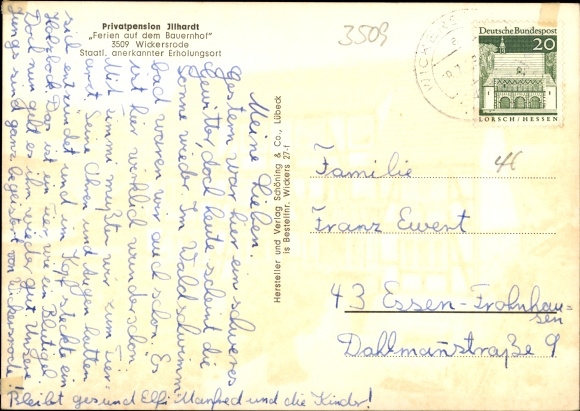 Privatpension Jllhardt
„Ferien auf dem Bauernhof"
3509 Wickersrode
Staatl. anerkannter Erholungsort
3509
WICKE
Deutsche Bundespost
20
LORSCH/HESSEN
46
Meine Lieben
Gestern war hier ein schweres
Gewitter, doch heute scheint die
Sonne wieder. Im Waldschwimm=
bad waren wir auch schon. Es
ist hier wirklich wunderschön.
Mit Timmi mußten wir zum Tier=
arzt. Seine Ohren und Augen hatten
sich entzündet und im Kopf steckte ein
Holzbock. Das ist ein Tier wie ein Blutegel.
Doch nun geht es ihm wieder gut. Unsere
Jungs sind ganz begeistert von Wickersrode!
Bleibt gesund Elfi Manfred und die Kinder!
Hersteller und Verlag Schöning & Co., Lübeck
is Bestellnr. Wickers 27-1
Familie
Franz Ewert
43 Essen-Frohnhau=
sen
Dahlmannstraße 9